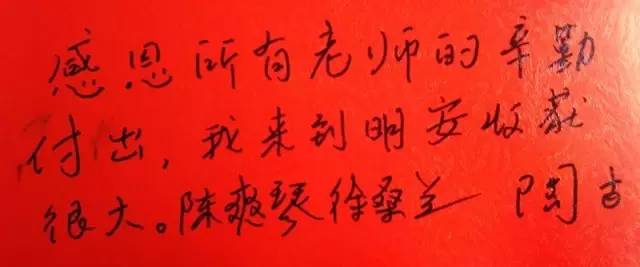 感恩所有老师的辛勤
付出，我来到明安收获
很大。陈爽琴徐桑兰 陶古